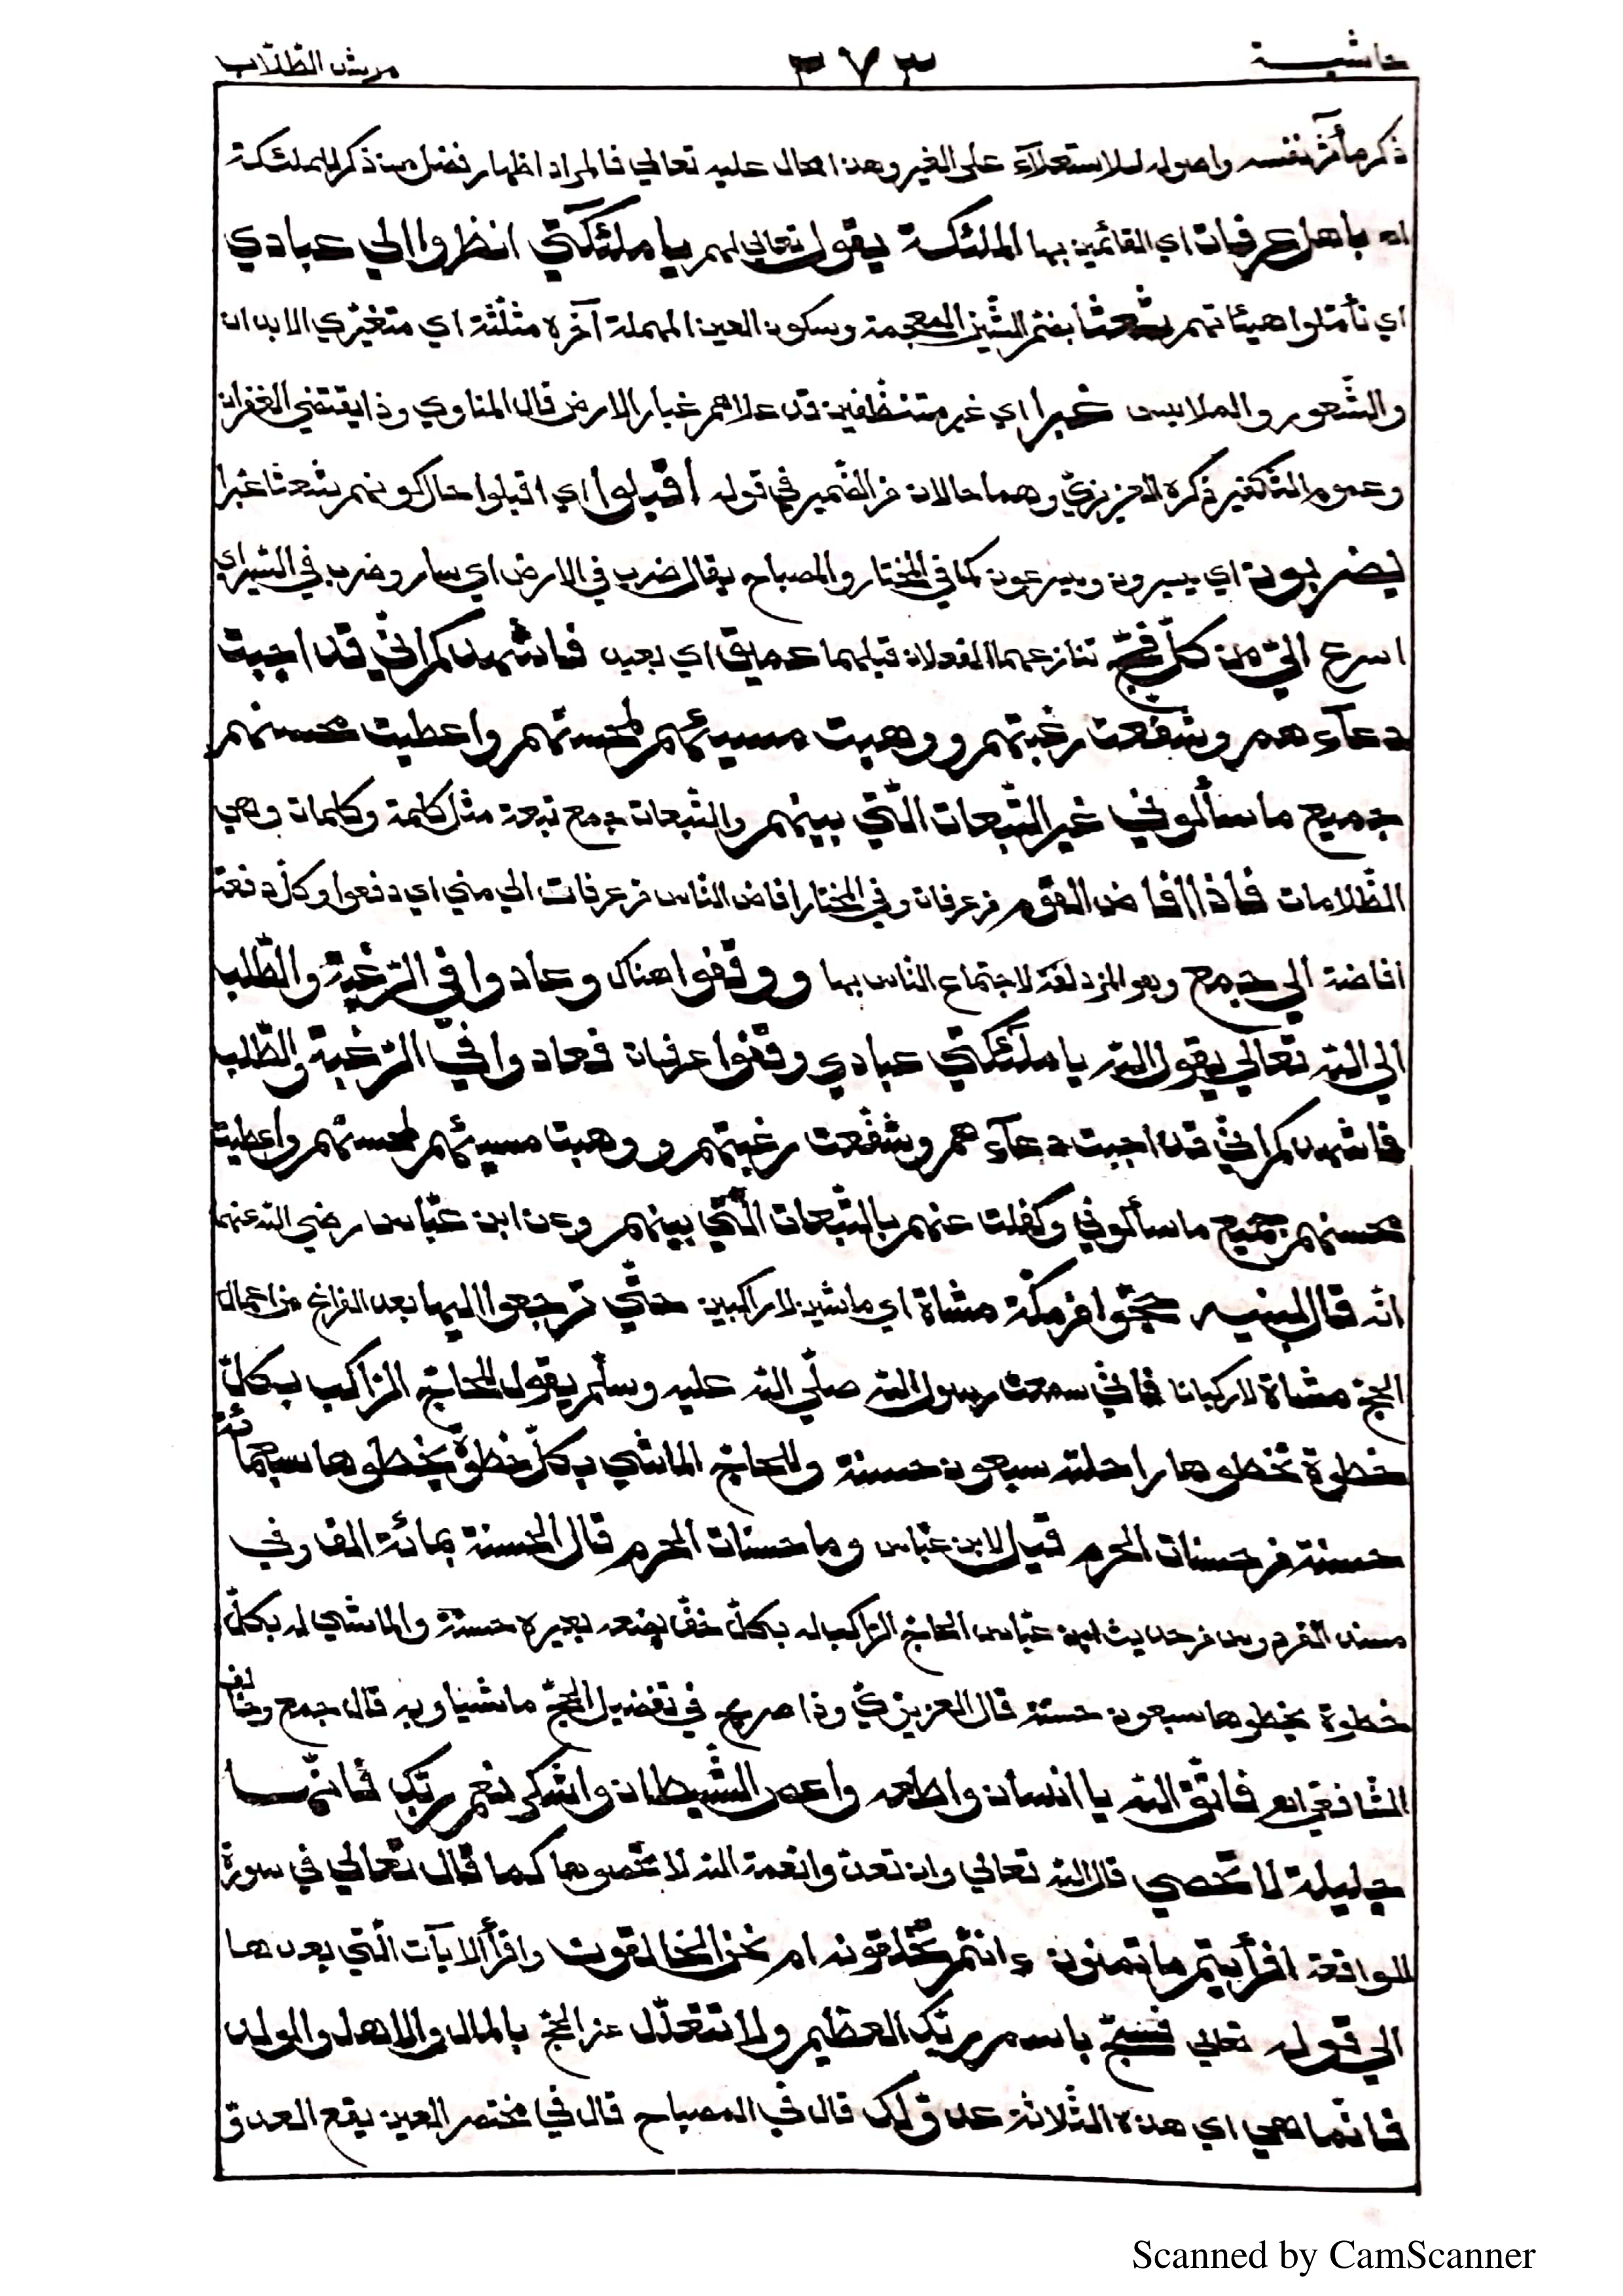 حاشية ٣٧٣ مرشد الطّلّاب
ذكر مأثر نفسه واصوله للاستعلآء على الغير وهذا محال عليه تعالي فالمراد اظهار فضل من ذكر للملئكة
اه باهل عرفات اي القائمين بها الملئكة يقول تعالي لهم يا ملئكتي انظروا الي عبادي
اي تأمّلوا هيئاتهم شعثا بضمّ الشّين المعجمة وسكون العين المهملة آخره مثلّثة اي متغيّري الابدان
والشّعور والملابس غبرا اي غير متنظّفين قد علاهم غبار الارض قال المناوي وذا يقتضي الغفران
وعموم التّكفير ذكره العزيزيّ وهما حالان من الضّمير في قوله اقبلوا اي اقبلوا حال كونهم شعثا غبرا
يضربون اي يسيرون ويسرعون كما في المختار والمصباح يقال ضرب في الارض اي سار وضرب في السّير اي
اسرع اليّ من كلّ فجّ تنازعهما الفعلان قبلهما عميق اي بعيد فاشهدكم انّي قد اجبت
دعآءهم وشفّعت رغبتهم ووهبت مسيئهم لمحسنهم واعطيت محسنهم
جميع ما سألوني غير التّبعات الّتي بينهم والتّبعات جمع تبعة مثل كلمة وكلمات وهي
الظّلامات فاذا افاض القوم من عرفات وفي المختار افاض النّاس من عرفات الي مني اي دفعوا وكلّ دفعة
افاضة الي جمع وهو المزدلفة لاجتماع الناس بها ووقفوا هناك وعادوا في الرّغبة والطّلب
الي الله تعالي يقول الله يا ملئكتي عبادي وقفوا عرفات فعادوا في الرّغبة والطّلب
فاشهدكم انّي قد اجبت دعآءهم وشفّعت رغبتهم ووهبت مسيئهم لمحسنهم واعطيت
محسنهم جميع ما سألوني وكفلت عنهم بالتّبعات الّتي بينهم وعن ابن عبّاس رضي الله عنهما
انّه قال لبنيه حجّوا من مكّة مشاة اي ماشين لا راكبين حتّي ترجعوا اليها بعد الفراغ من اعمال
الحجّ مشاة لا ركبانا فانّي سمعت رسول الله صلّي الله عليه وسلّم يقول للحاجّ الرّاكب بكلّ
خطوة تخطوها راحلته سبعون حسنة وللحاجّ الماشي بكلّ خطوة يخطوها سبعمائة
حسنة من حسنات الحرم قيل لابن عبّاس وما حسنات الحرم قال الحسنة بمائة الف وفي
مسند الفردوس من حديث ابن عبّاس الحاجّ الرّاكب له بكلّ خفّ يضعه بعيره حسنة والماشي له بكلّ
خطوة يخطوها سبعون حسنة قال العزيزيّ وذا صريح في تفضيل الحجّ ماشيا وبه قال جمع وخالف
الشّافعي اه فاتّق الله يا انسان واطعه واعص الشّيطان واشكر نعم ربّك فانّها
جليلة لا تحصي قال الله تعالي وان تعدّوا نعمة الله لا تحصوها كما قال تعالي في سورة
الواقعة افرأيتم ما تمنون ءانتم تخلقونه ام نحن الخالقون واقرأ الايآت الّتي بعدها
الي قوله تعالي فسبّح باسم ربّك العظيم ولا تتعلّل عن الحجّ بالمال والاهل والولد
فانّما هي اي هذه الثّلاثة عدوّ لك قال في المصباح قال في مختصر العين يقع العدوّ
Scanned by CamScanner